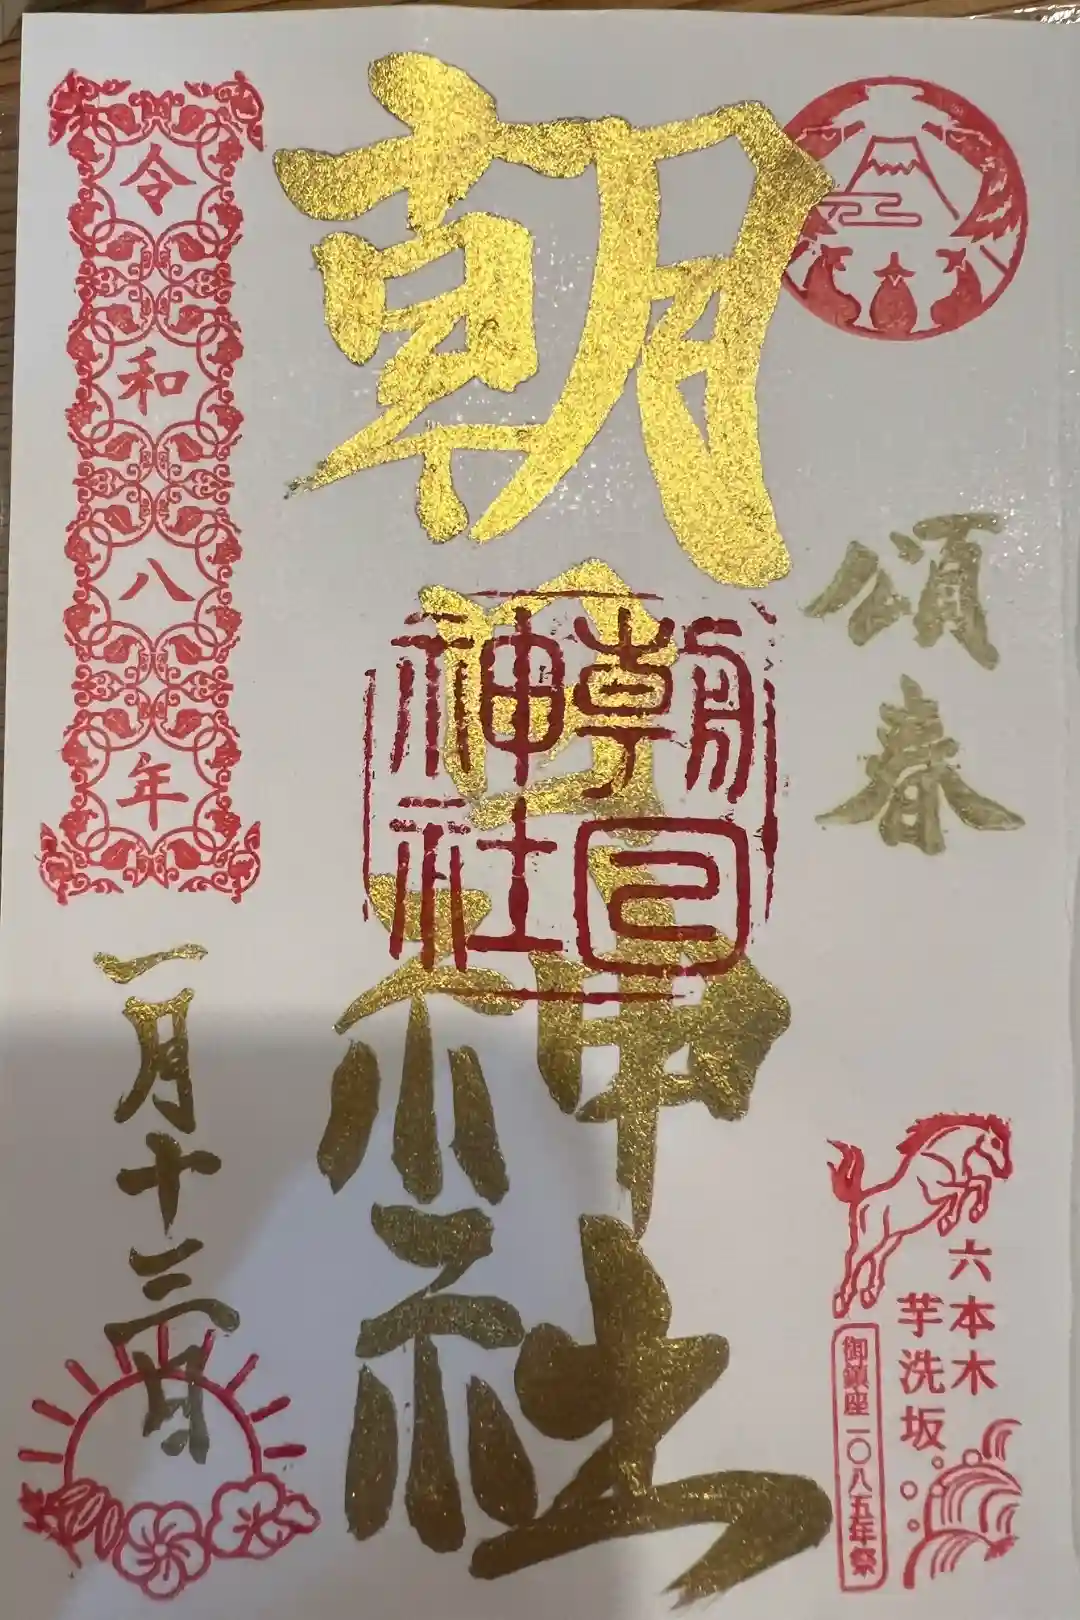 頌春
六本木
芋洗坂
御鎮座一〇八五年祭
朝日神社
朝日神社
令和八年
一月十三日